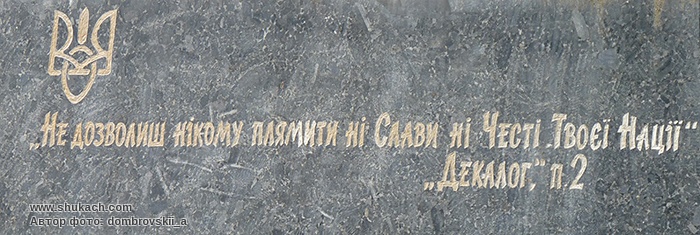 „Не дозволиш нікому плямити ні Слави ні Честі Твоєї Нації“
„Декалог," п.2
www.shukach.com
Автор фото: dombrovskii_a